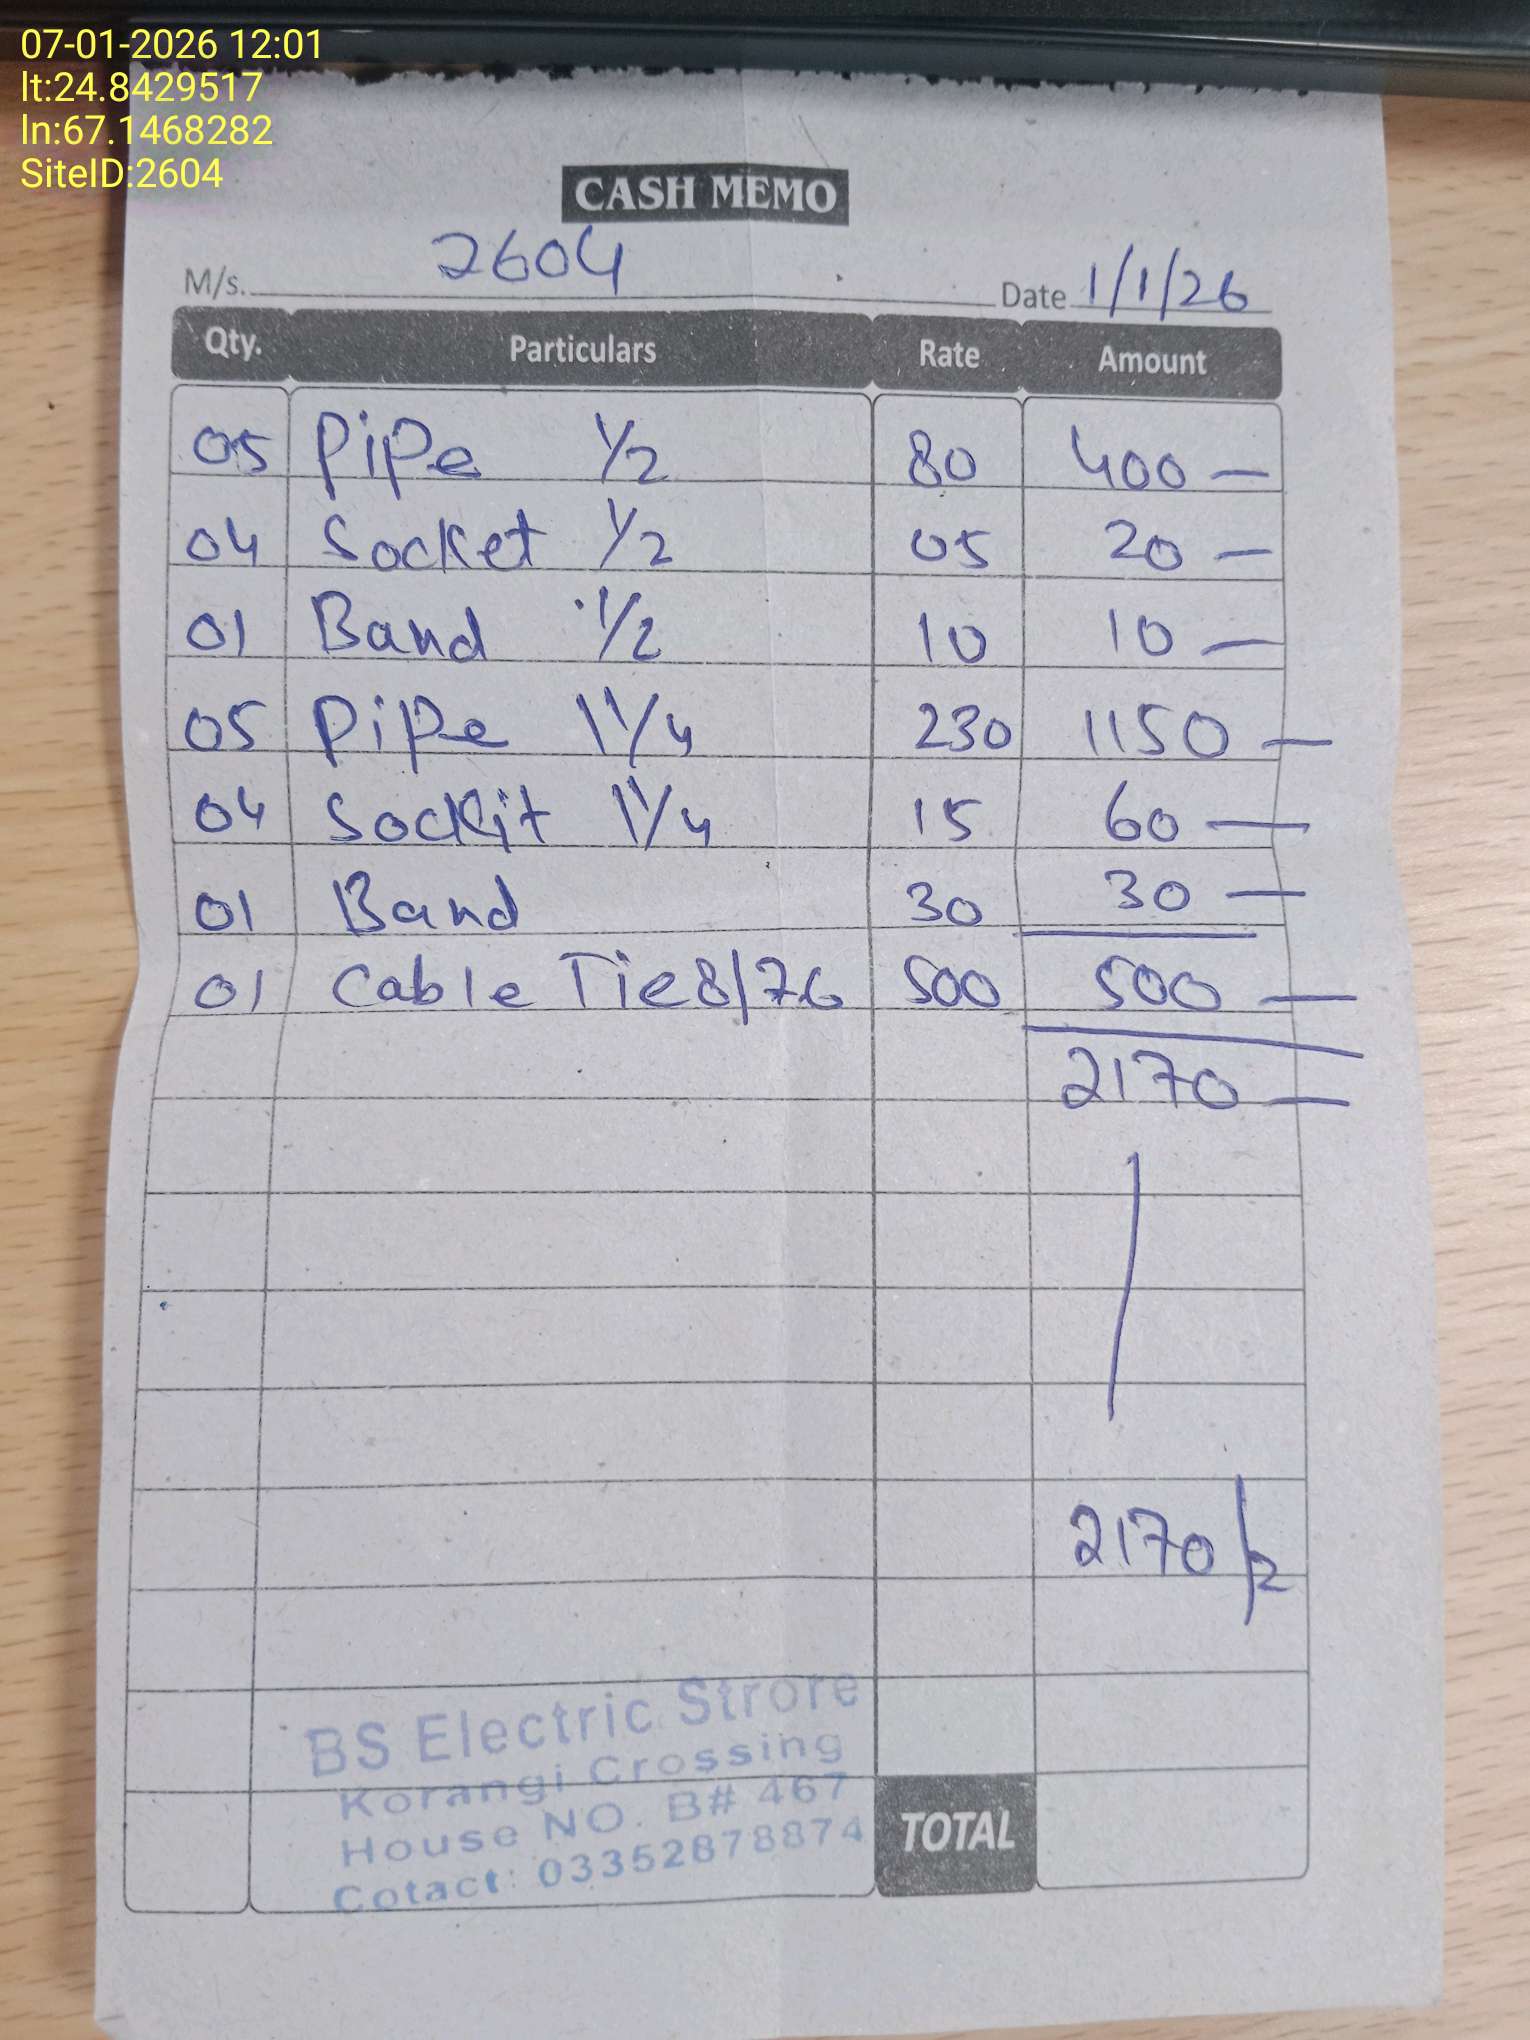 07-01-2026 12:01
lt:24.8429517
ln:67.1468282
SiteID:2604
CASH MEMO
M/s. 2604 Date 1/1/26
Qty. Particulars Rate Amount
05 Pipe 1/2 80 400 —
04 Socket 1/2 05 20 —
01 Band 1/2 10 10 —
05 Pipe 1 1/4 230 1150 —
04 Sockit 1 1/4 15 60 —
01 Band 30 30 —
01 Cable Tie 8/76 500 500 —
2170 —
2170
BS Electric Strore
Korangi Crossing
House NO. B# 467
Cotact: 03352878874
TOTAL